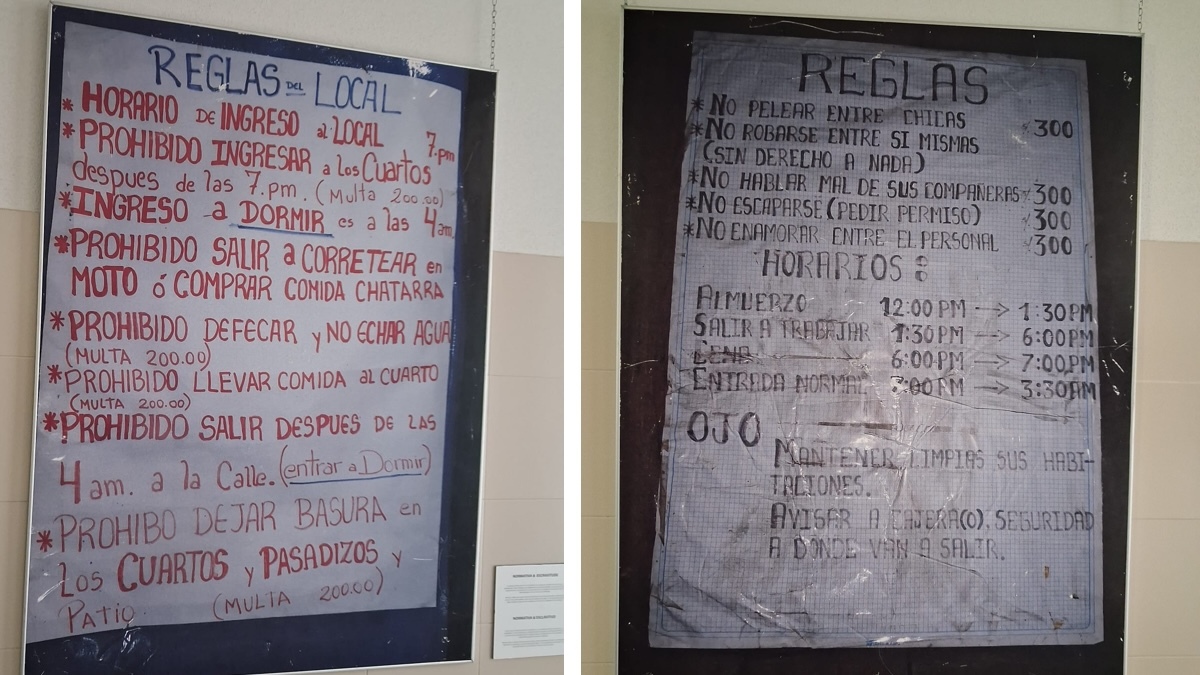 REGLAS DEL LOCAL
* HORARIO DE INGRESO al LOCAL 7.pm
* PROHIBIDO INGRESAR a los Cuartos
despues de las 7.pm. (Multa 200.00)
* INGRESO a DORMIR es a las 4am
* PROHIBIDO SALIR a CORRETEAR en
MOTO ó COMPRAR COMIDA CHATARRA
* PROHIBIDO DEFECAR y NO ECHAR AGUA
(MULTA 200.00)
* PROHIBIDO LLEVAR COMIDA al CUARTO
(MULTA 200.00)
* PROHIBIDO SALIR DESPUES DE LAS
4 am. a la Calle. (entrar a Dormir)
* PROHIBO DEJAR BASURA en
Los CUARTOS y PASADIZOS y
Patio. (MULTA 200.00)
REGLAS
* NO PELEAR ENTRE CHICAS 300
* NO ROBARSE ENTRE SI MISMAS
(SIN DERECHO A NADA)
* NO HABLAR MAL DE SUS COMPAÑERAS 300
* NO ESCAPARSE (PEDIR PERMISO) 300
* NO ENAMORAR ENTRE EL PERSONAL 300
HORARIOS:
ALMUERZO 12:00 PM → 1:30 PM
SALIR A TRABAJAR 1:30 PM → 6:00 PM
CENA 6:00 PM → 7:00 PM
ENTRADA NORMAL 7:00 PM → 3:30 AM
OJO
MANTENER LIMPIAS SUS HABI-
TACIONES.
AVISAR A CAJERA(O), SEGURIDAD
A DONDE VAN A SALIR.